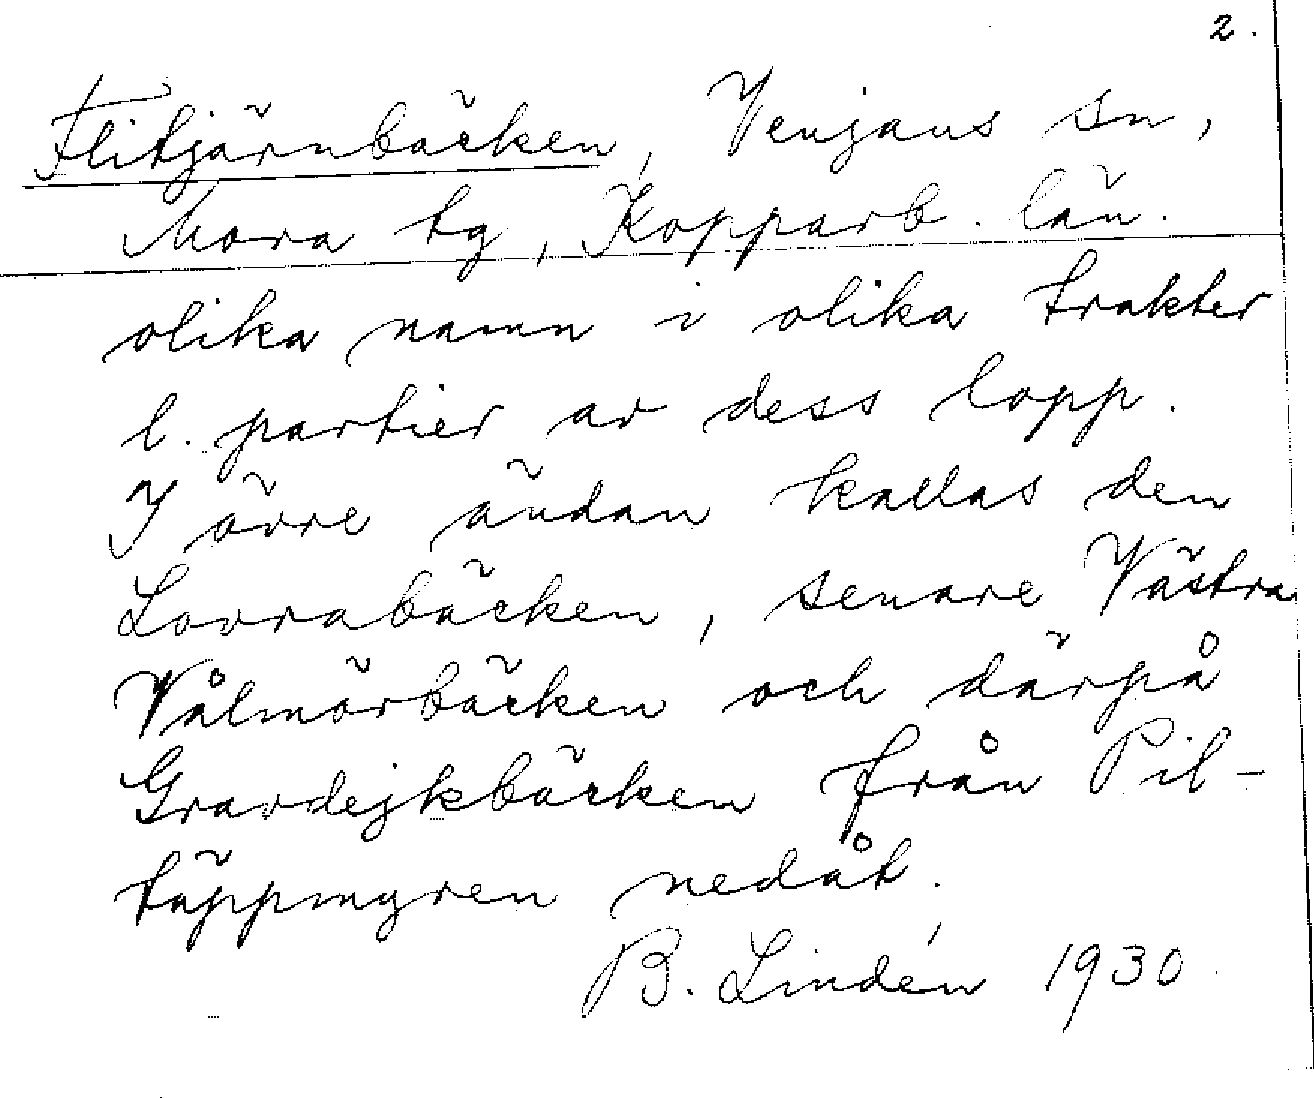 2.
Flitjärnbäcken, Venjans sn,
Mora tg, Kopparb. län.
olika namn i olika trakter
l. partier av dess lopp.
I övre ändan kallas den
Lovrabäcken, senare Västra
Vålmörbäcken och därpå
Gravdejkbäcken från Pil-
täppmyren nedåt.
B. Lindén 1930